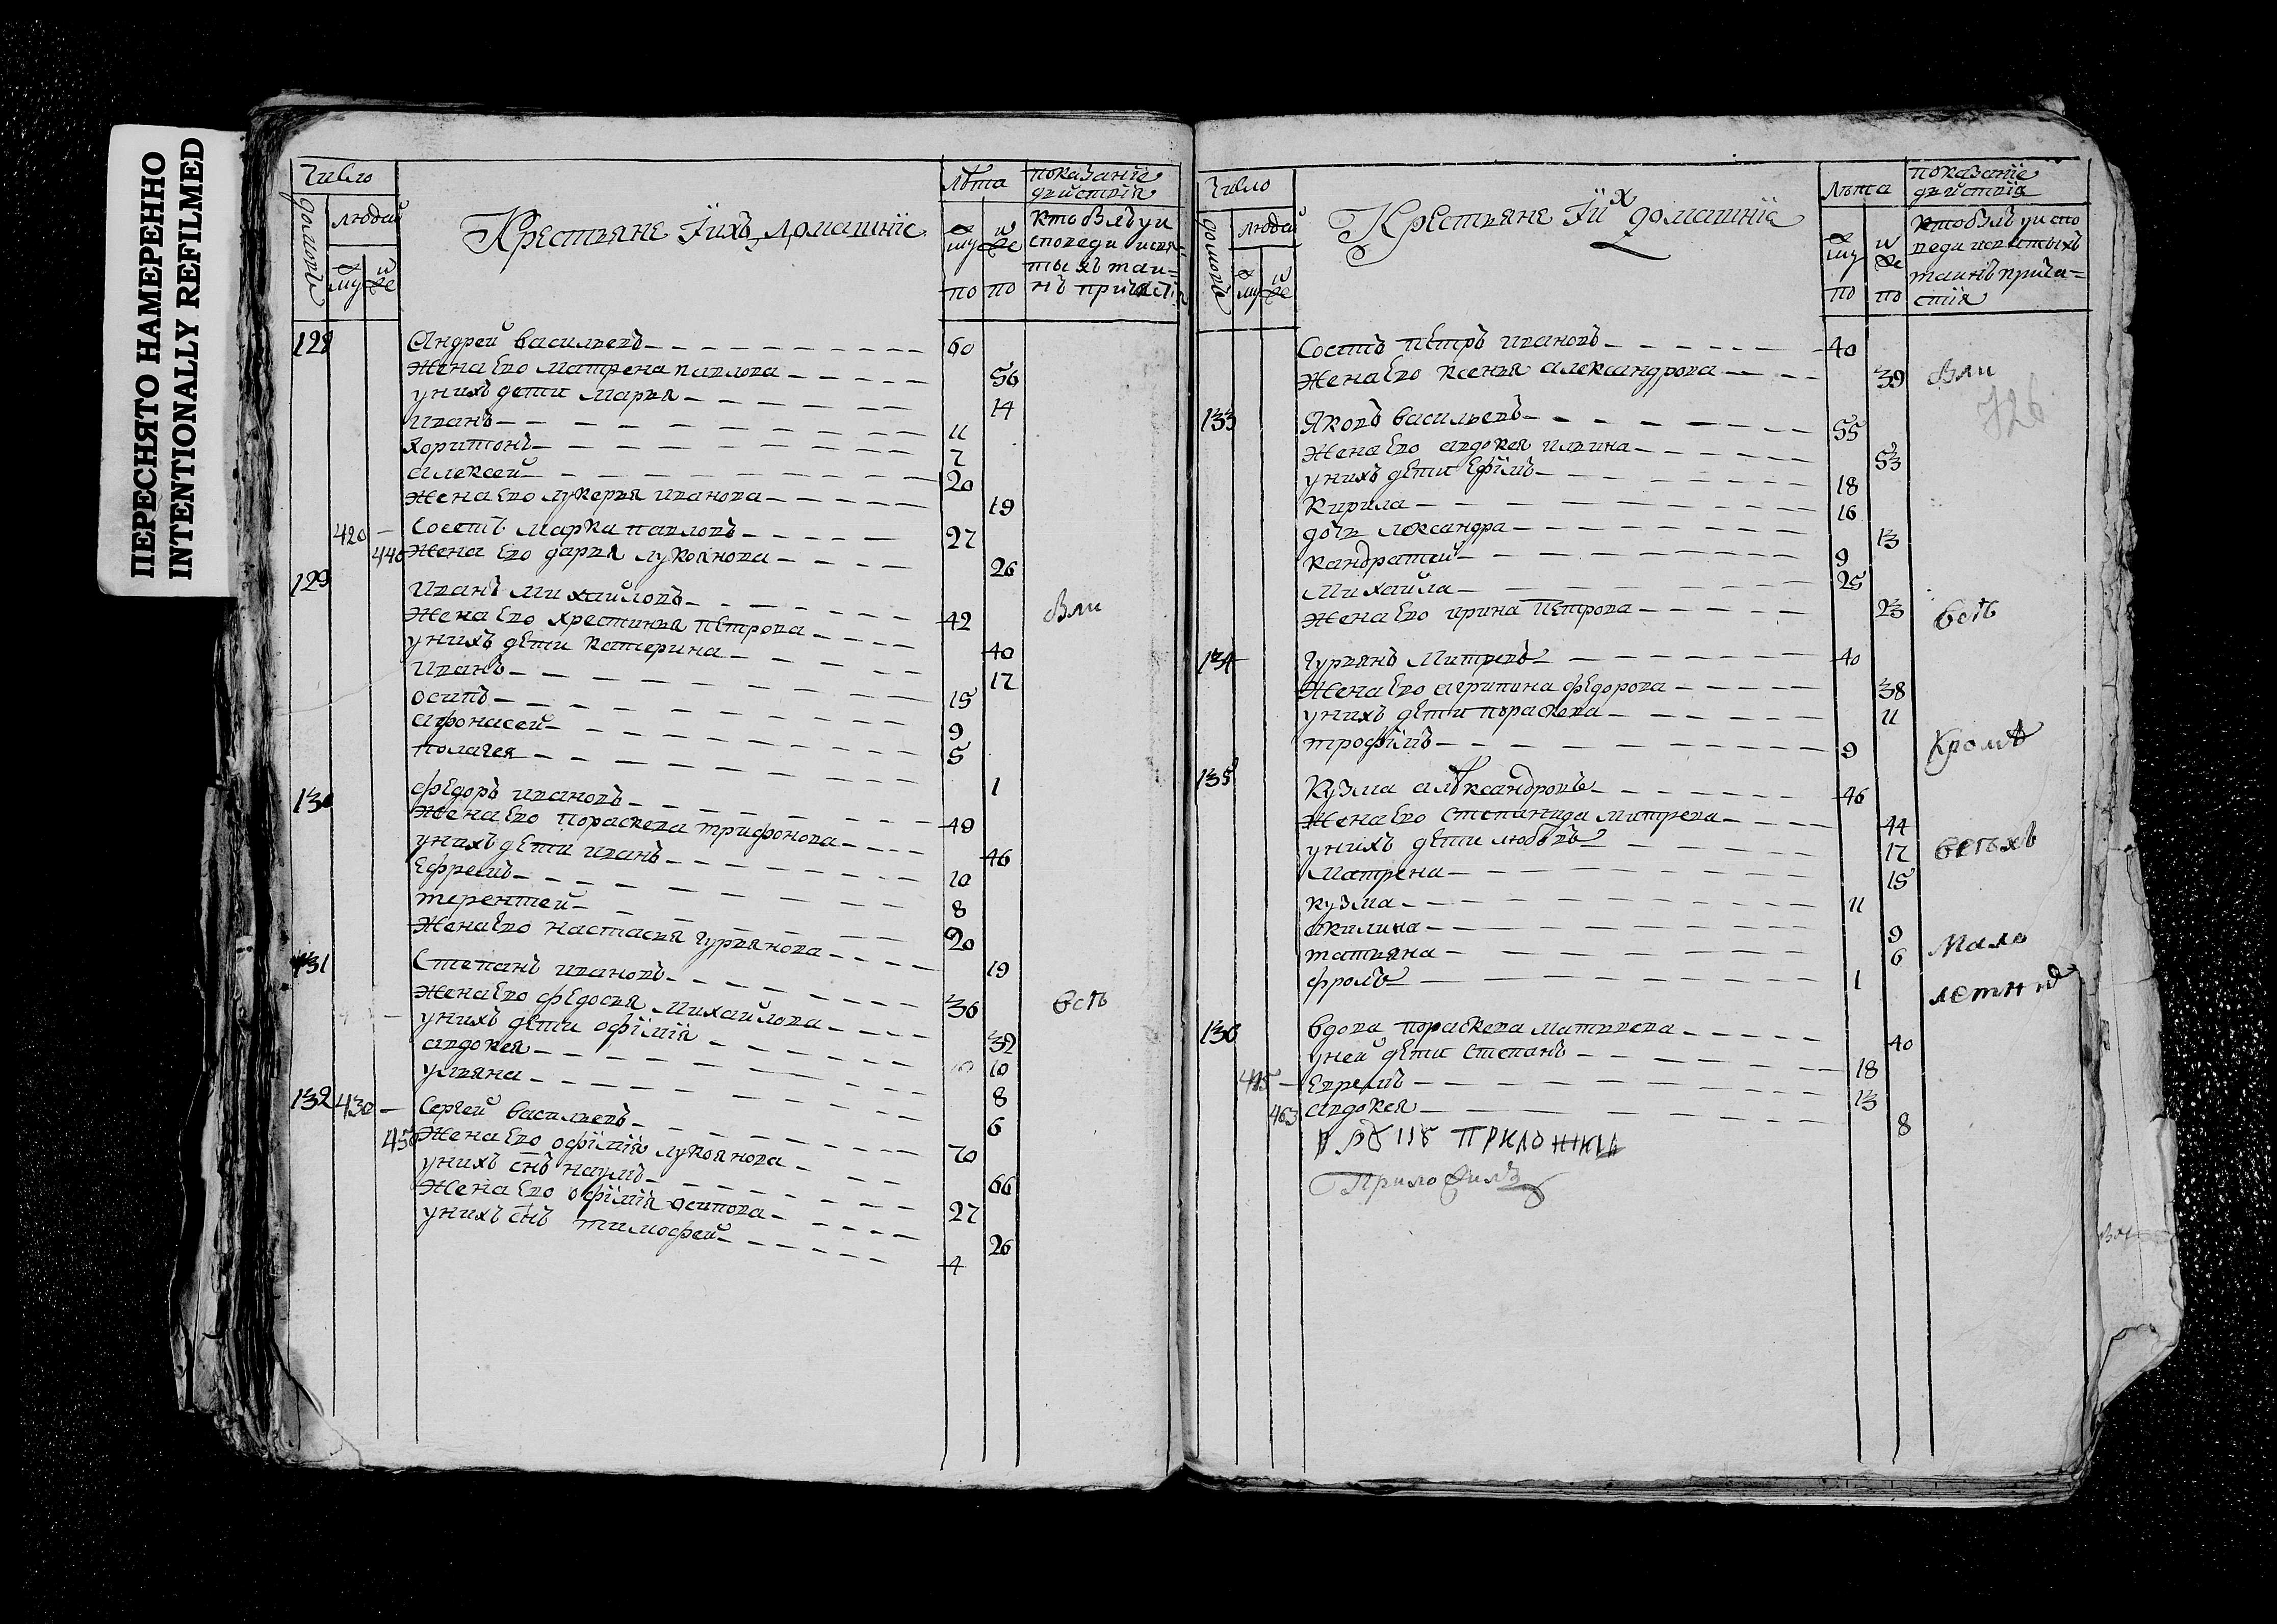 ПЕРЕСНЯТО НАМЕРЕННО
INTENTIONALLY REFILMED
Число
домовъ
людей
му
же
Крестьяне Їихъ домашнїе
лѣта
му
же
по по
показанїе
дѣйствїя
кто былъ у и
споведи и свя-
тыхъ таи=
нъ причасті
128 Андрей васильевъ 60
Жена Его Матрена павлова 56
унихъ дети Марья 14
иванъ 11
Харитонъ 7
алексей 20
Жена Его лукерья иванова 19
420 Состъ Марка павловъ 27
440 Жена Его дарья лукоянова 26
129 иванъ Михайловъ 42
были
Жена Его хрестинья пЕтрова 40
унихъ дЕти катерина 17
иванъ 15
осипъ 9
афонасей 5
полагея 1
130 фЕдоръ ивановъ 49
Жена Его параскева трифонова 46
унихъ дЕти иванъ 10
Ефремъ 8
терентей 20
Жена Его настасья гурьянова 19
131 Степанъ ивановъ 36
Жена Его фЕдосья Михайлова 32
всѣ
унихъ дЕти офїмїя 10
авдокея 8
ульяна 6
132 430 Сергей васильевъ 70
450 Жена Его офїмїя лукоянова 66
унихъ снъ наумъ 27
Жена Его офїмїя осипова 26
унихъ снъ тимофей 4
Число
домовъ
людей
му
же
Крестьяне Їих домашнїе
лѣта
му
же
по по
показанїе
дѣйствїя
кто былъ у испо
веди и святыхъ
таинъ прича=
стїя
Состъ пЕтръ ивановъ 40
Жена Его ксенья александрова 39
были
726
133 Яковъ васильевъ 55
Жена Его авдокея ильина 53
унихъ дЕти Ефїмъ 18
Кирила 16
дочь лександра 13
кандратей 9
Михайла 25
Жена Его ирина пЕтрова 23
всѣ
134 Гурьянъ Митревъ 40
Жена Его агрипина фЕдорова 38
унихъ дЕти параскева 11
трофїмъ 9
Кромѣ
135 Кузма алЕксандровъ 46
Жена Его Степанида митрева 44
унихъ дЕти любовь 17
всѣхъ
Матрена 15
кузма 11
акилина 9
татьяна 6
Мало
фролъ 1
летнѣ
136 вдова параскева матвеева 40
уней дЕти Степанъ 18
445 Ефремъ 13
463 авдокея 8